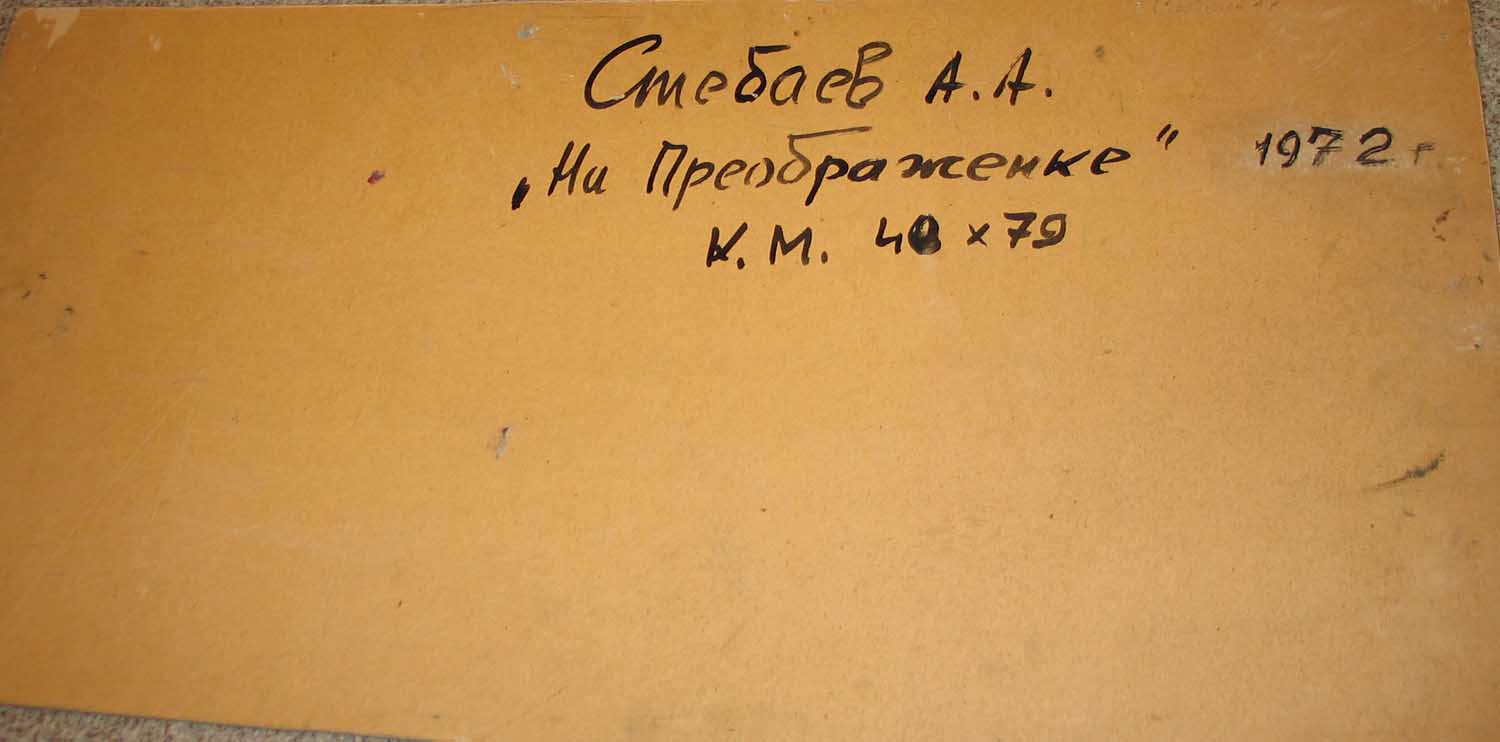 Стебаев А.А.
„На Преображенке" 1972 г
К.М. 40 х 79